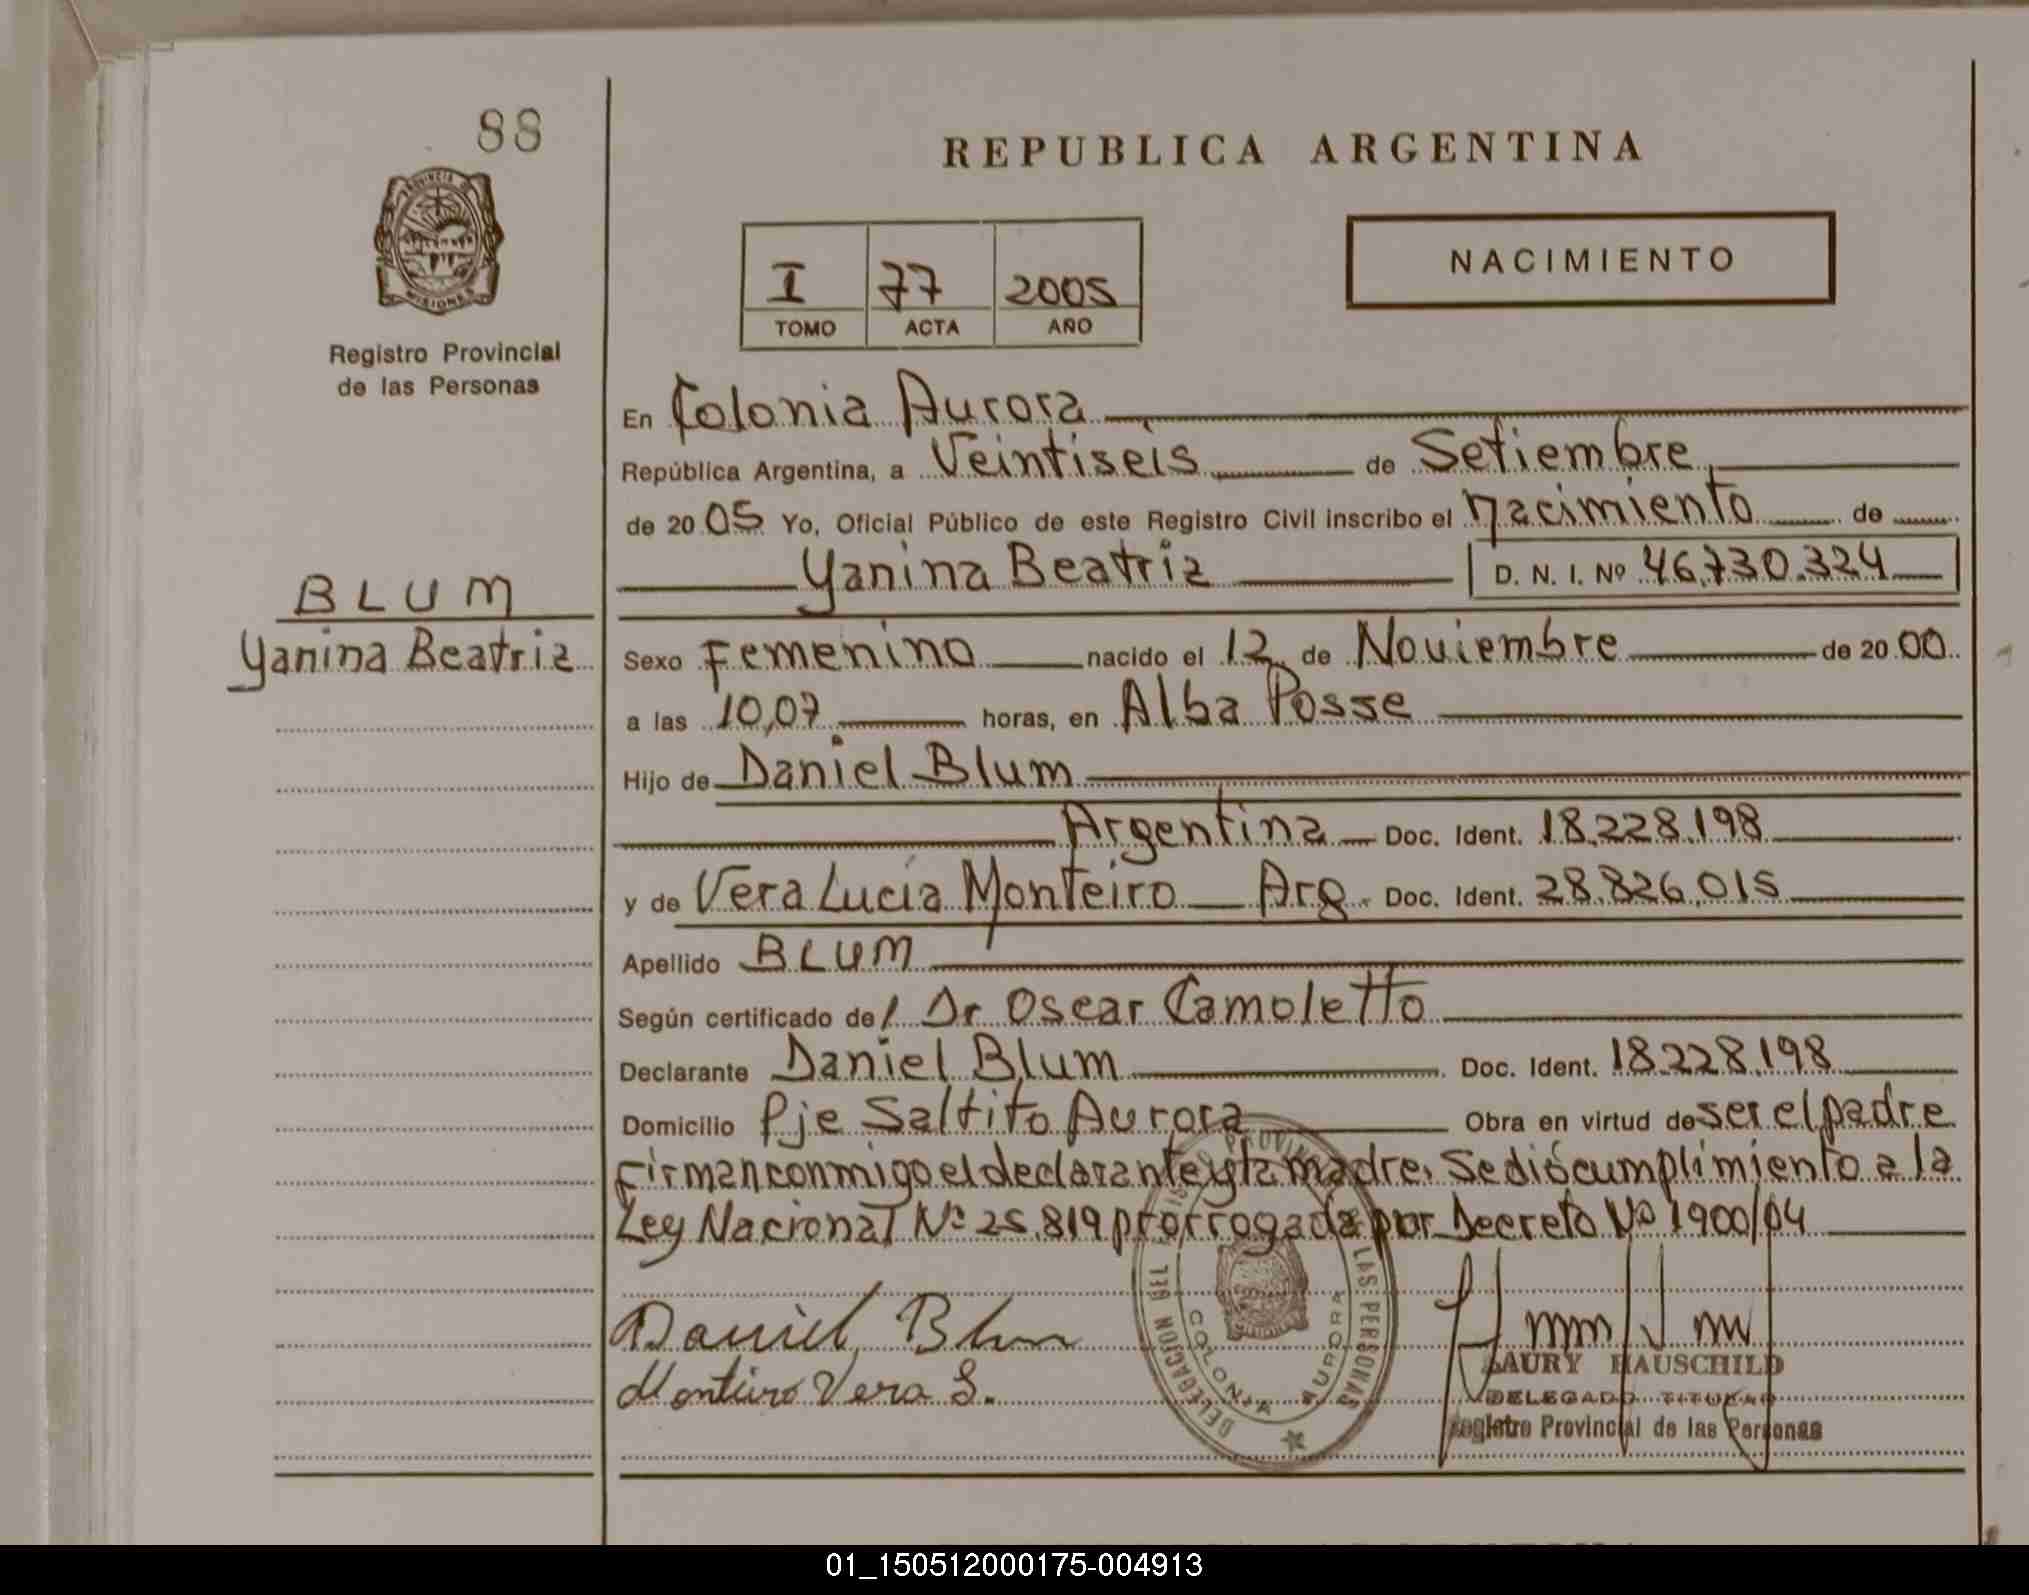 88
REPUBLICA ARGENTINA
PROVINCIA DE
MISIONES
Registro Provincial
de las Personas
I 77 2005
TOMO ACTA AÑO
NACIMIENTO
En Colonia Aurora
República Argentina, a Veintiseis de Setiembre
de 2005 Yo, Oficial Público de este Registro Civil inscribo el nacimiento de
Yanina Beatriz D. N. I. Nº 46.730.324
BLUM
Yanina Beatriz
Sexo Femenino nacido el 12 de Noviembre de 2000
a las 10,07 horas, en Alba Posse
Hijo de Daniel Blum
Argentina Doc. Ident. 18.228.198
y de Vera Lucía Monteiro Arg. Doc. Ident. 28.826.015
Apellido BLUM
Según certificado del Dr Oscar Camoletto
Declarante Daniel Blum Doc. Ident. 18.228.198
Domicilio Pje Saltito Aurora Obra en virtud de ser el padre
Firman conmigo el declarante y la madre. Se dió cumplimiento a la
Ley Nacional Nº 25.819 prorrogada por Decreto Nº 1900/04
Daniel Blum
Monteiro Vera L.
DELEGACION DEL REGISTRO PROVINCIAL DE LAS PERSONAS
COLONIA AURORA
LAURY HAUSCHILD
DELEGADO TITULAR
Registro Provincial de las Personas
01_150512000175-004913